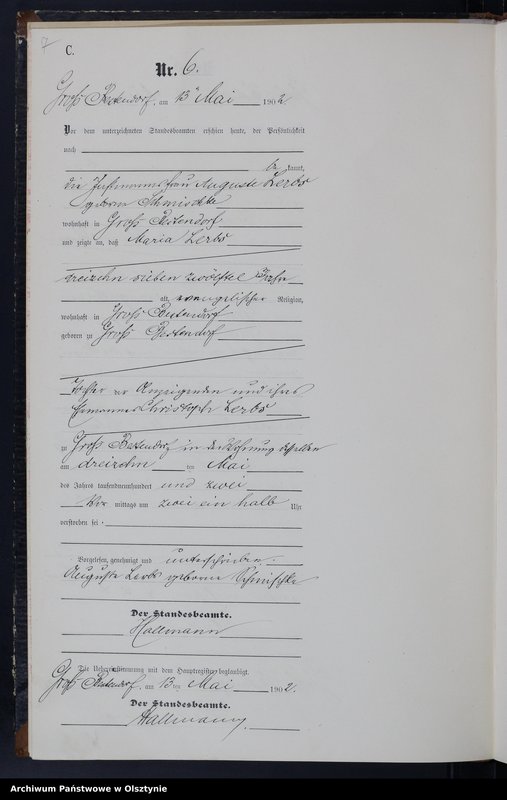 7
C.
Nr. 6.
Groß Bestendorf, am 13ten Mai 1902
Vor dem unterzeichneten Standesbeamten erschien heute, der Persönlichkeit
nach
be kannt,
die Instmannsfrau Auguste Lerbs
geborne Schmischke
wohnhaft in Groß Bestendorf
und zeigte an, daß Maria Lerbs
dreizehn sieben zwölftel Jahr
alt, evangelischer Religion,
wohnhaft in Groß Bestendorf
geboren zu Groß Bestendorf
Tochter der Anzeigenden und ihres
Ehemannes Christoph Lerbs
zu Groß Bestendorf in der Wohnung derselben
am dreizehn ten Mai
des Jahres tausendneunhundert und zwei
Vor mittags um zwei ein halb Uhr
verstorben sei.
Vorgelesen, genehmigt und unterschrieben
Auguste Lerbs geborne Schmischke
Der Standesbeamte.
Hallmann
Die Uebereinstimmung mit dem Hauptregister beglaubigt.
Groß Bestendorf, am 13 ten Mai 1902.
Der Standesbeamte.
Hallmann
Archiwum Państwowe w Olsztynie